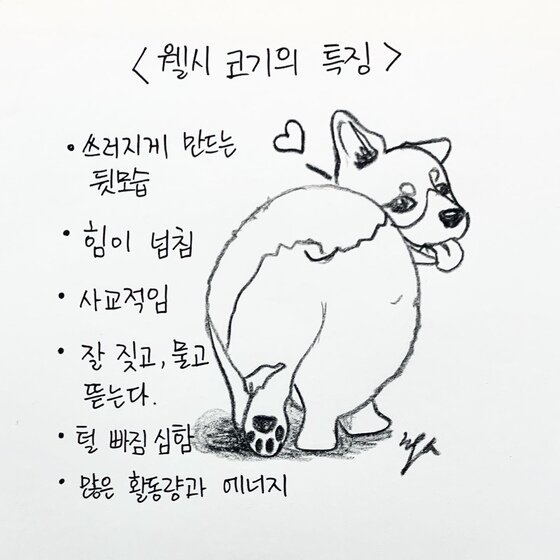 <웰시 코기의 특징>
• 쓰러지게 만드는
뒷모습
• 힘이 넘침
• 사교적임
• 잘 짖고, 물고
뜯는다.
• 털 빠짐 심함
• 많은 활동량과 에너지